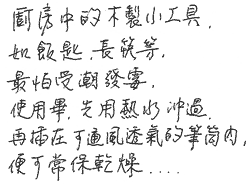 廚房中的木製小工具,
如飯匙,長筷等,
最怕受潮發霉,
使用畢,先用熱水沖過,
再插在可通風透氣的筆筒內,
便可常保乾燥....